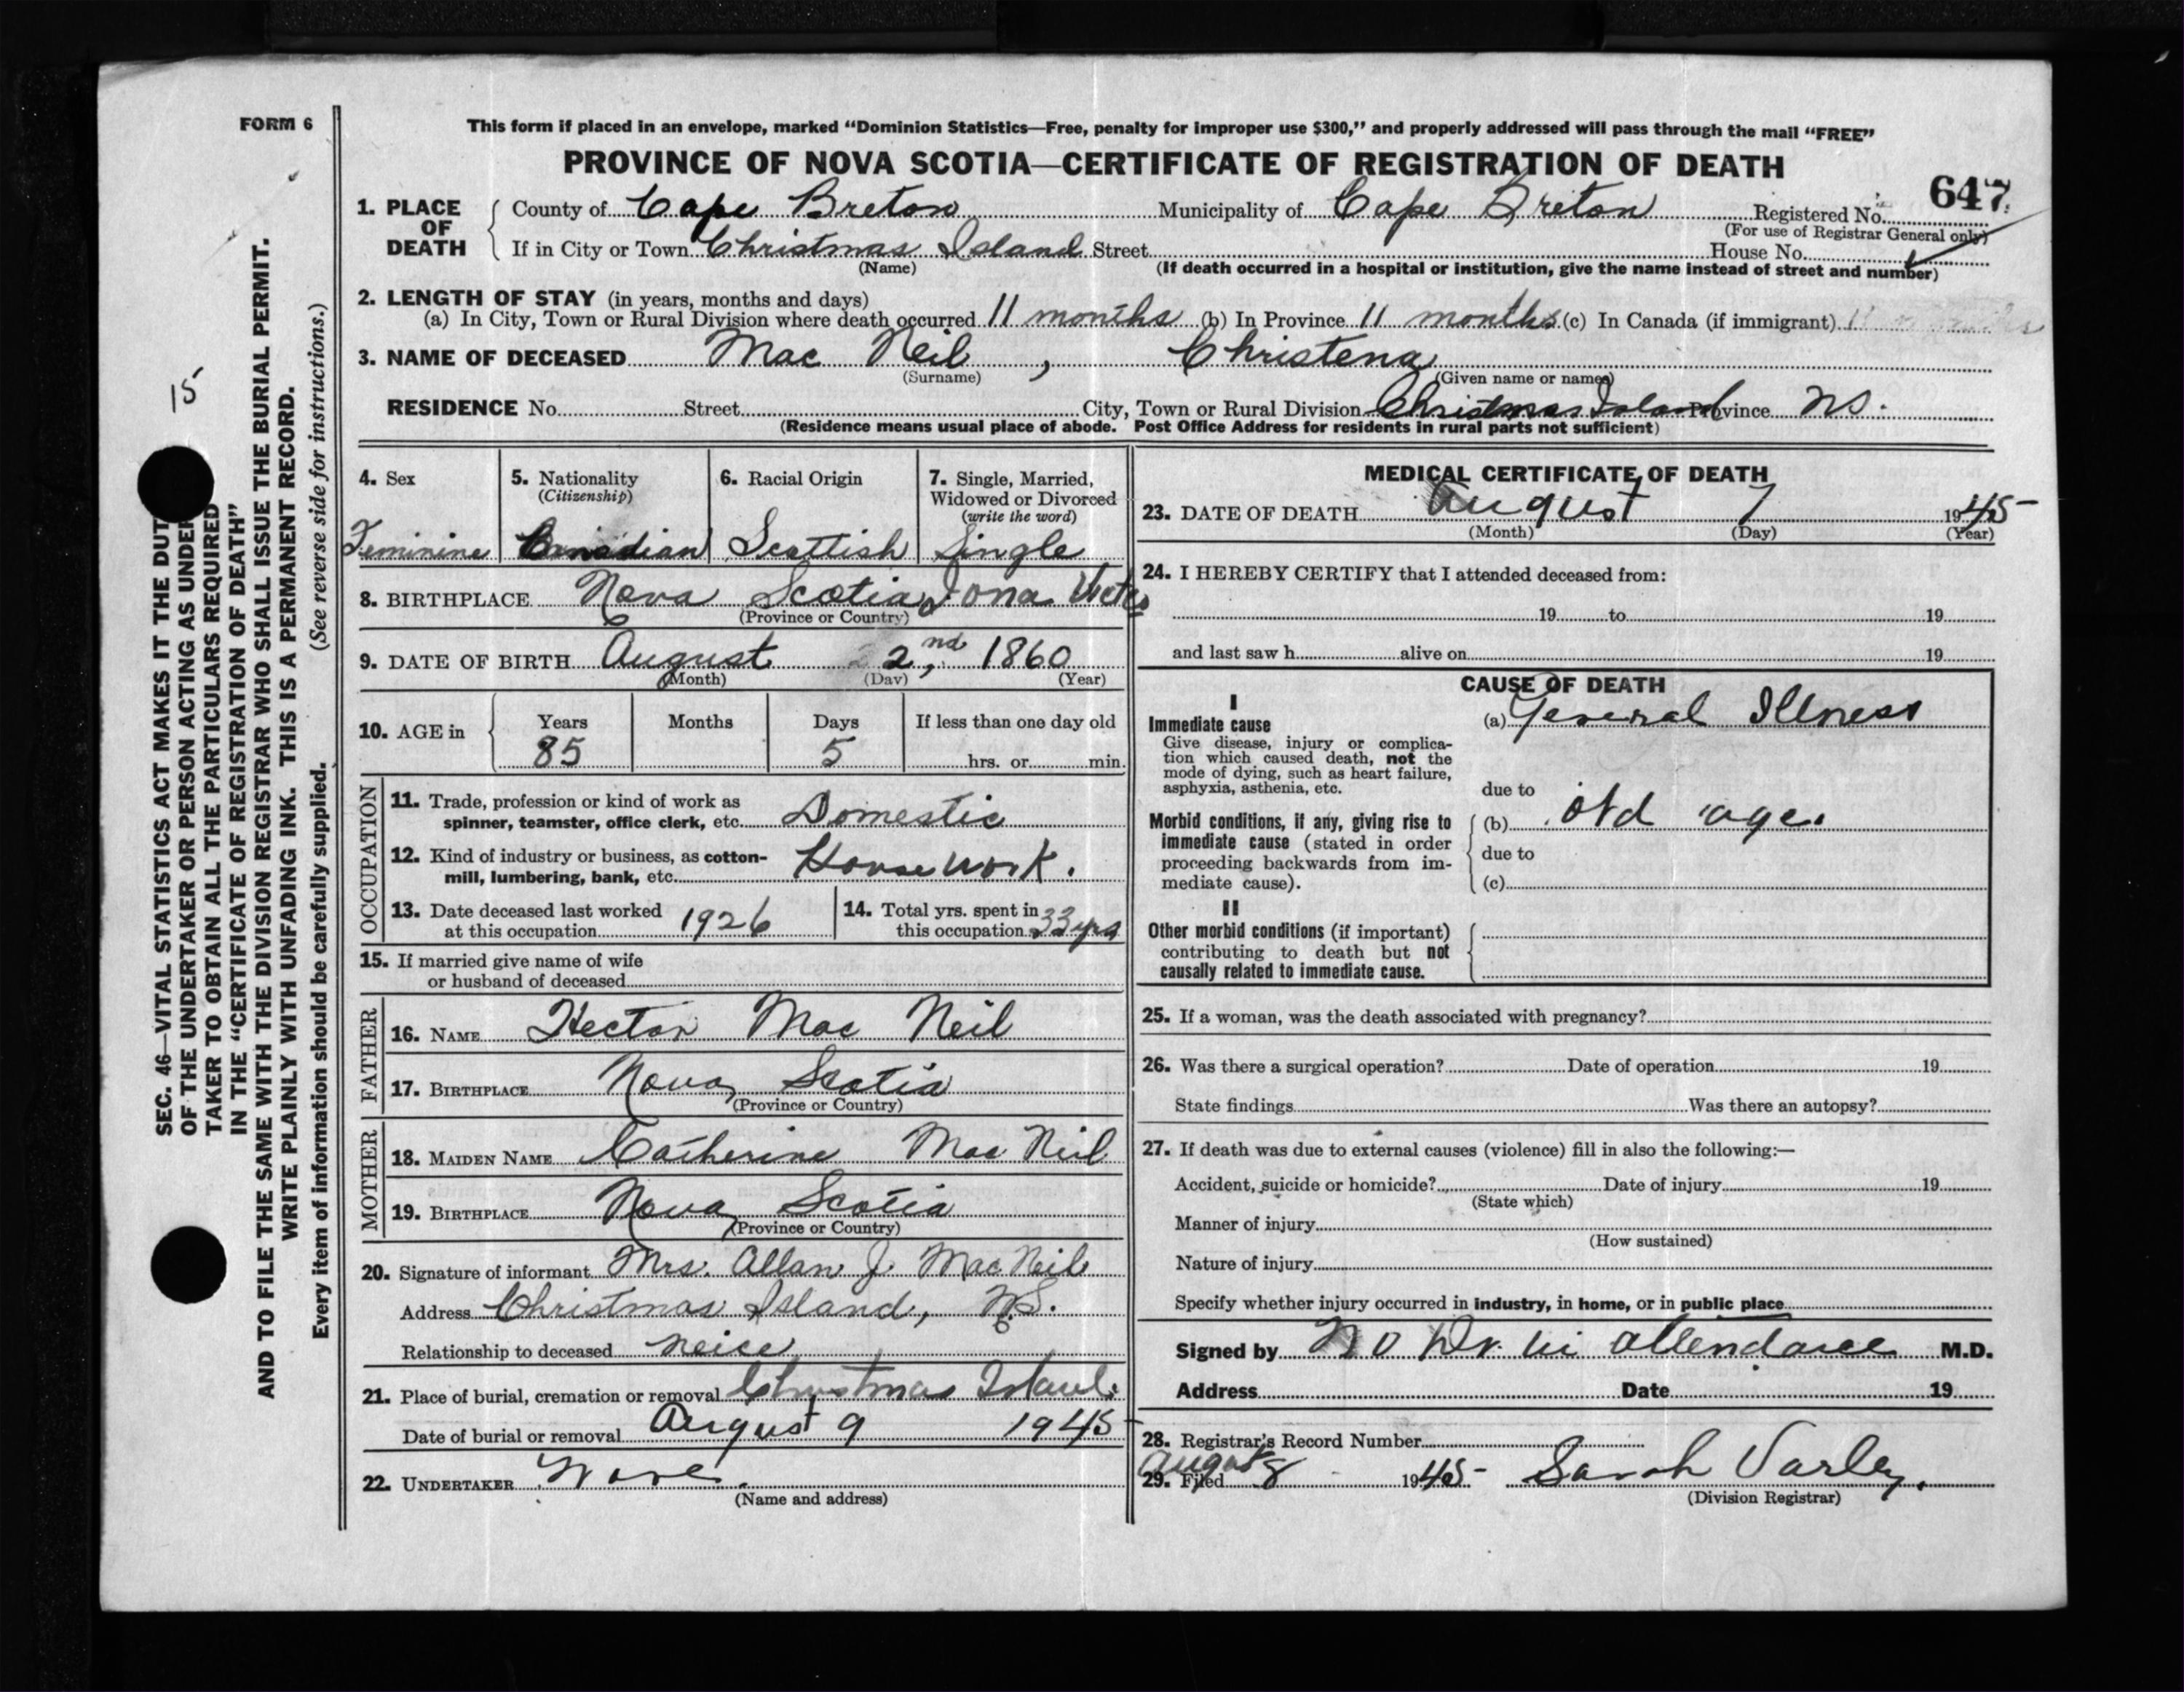 FORM 6
This form if placed in an envelope, marked "Dominion Statistics—Free, penalty for improper use $300," and properly addressed will pass through the mail "FREE"
PROVINCE OF NOVA SCOTIA—CERTIFICATE OF REGISTRATION OF DEATH
647
1. PLACE OF DEATH
County of Cape Breton Municipality of Cape Breton Registered No.
(For use of Registrar General only)
If in City or Town Christmas Island Street House No.
(Name) (If death occurred in a hospital or institution, give the name instead of street and number)
2. LENGTH OF STAY (in years, months and days)
(a) In City, Town or Rural Division where death occurred 11 months (b) In Province 11 months (c) In Canada (if immigrant) 11 months
3. NAME OF DECEASED Mac Neil , Christena
(Surname) (Given name or names)
RESIDENCE No. Street City, Town or Rural Division Christmas Island Province NS.
(Residence means usual place of abode. Post Office Address for residents in rural parts not sufficient)
4. Sex
Feminine
5. Nationality
(Citizenship)
Canadian
6. Racial Origin
Scottish
7. Single, Married,
Widowed or Divorced
(write the word)
Single
8. BIRTHPLACE Nova Scotia Iona
(Province or Country)
9. DATE OF BIRTH August 2nd, 1860
(Month) (Day) (Year)
10. AGE in
Years Months Days If less than one day old
85 5 hrs. or min.
OCCUPATION
11. Trade, profession or kind of work as
spinner, teamster, office clerk, etc. Domestic
12. Kind of industry or business, as cotton-
mill, lumbering, bank, etc. House work.
13. Date deceased last worked
at this occupation 1926
14. Total yrs. spent in
this occupation 33 yrs
15. If married give name of wife
or husband of deceased
FATHER
16. NAME Hector Mac Neil
17. BIRTHPLACE Nova Scotia
(Province or Country)
MOTHER
18. MAIDEN NAME Catherine Mac Neil
19. BIRTHPLACE Nova Scotia
(Province or Country)
20. Signature of informant Mrs. Allan J. MacNeil
Address Christmas Island, N.S.
Relationship to deceased neice
21. Place of burial, cremation or removal Christmas Island
Date of burial or removal August 9 1945
22. UNDERTAKER None.
(Name and address)
MEDICAL CERTIFICATE OF DEATH
23. DATE OF DEATH August 7 1945
(Month) (Day) (Year)
24. I HEREBY CERTIFY that I attended deceased from:
19 to 19
and last saw h alive on 19
CAUSE OF DEATH
I
Immediate cause
Give disease, injury or complica-
tion which caused death, not the
mode of dying, such as heart failure,
asphyxia, asthenia, etc.
(a) General Illness
due to
Morbid conditions, if any, giving rise to
immediate cause (stated in order
proceeding backwards from im-
mediate cause).
(b) old age.
due to
(c)
II
Other morbid conditions (if important)
contributing to death but not
causally related to immediate cause.
25. If a woman, was the death associated with pregnancy?
26. Was there a surgical operation? Date of operation 19
State findings Was there an autopsy?
27. If death was due to external causes (violence) fill in also the following:—
Accident, suicide or homicide? Date of injury 19
(State which)
Manner of injury
(How sustained)
Nature of injury
Specify whether injury occurred in industry, in home, or in public place
Signed by No Dr. in attendance M.D.
Address Date 19
28. Registrar's Record Number
29. Filed August 8 1945 Sarah Varley.
(Division Registrar)
15
SEC. 46—VITAL STATISTICS ACT MAKES IT THE DUT
OF THE UNDERTAKER OR PERSON ACTING AS UNDER
TAKER TO OBTAIN ALL THE PARTICULARS REQUIRED
IN THE "CERTIFICATE OF REGISTRATION OF DEATH"
AND TO FILE THE SAME WITH THE DIVISION REGISTRAR WHO SHALL ISSUE THE BURIAL PERMIT.
WRITE PLAINLY WITH UNFADING INK. THIS IS A PERMANENT RECORD.
Every item of information should be carefully supplied. (See reverse side for instructions.)